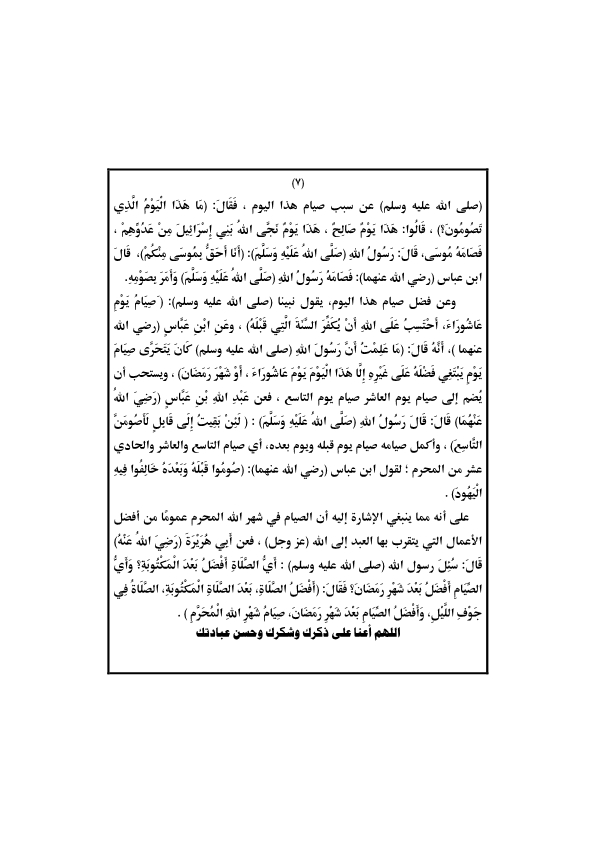 (٧)
(صلى الله عليه وسلم) عن سبب صيام هذا اليوم ، فَقَالَ: (مَا هَذَا الْيَوْمُ الَّذِي
تَصُومُونَ؟) ، قَالُوا: هَذَا يَوْمٌ صَالِحٌ ، هَذَا يَوْمُ نَجَّى اللهُ بَنِي إِسْرَائِيلَ مِنْ عَدُوِّهِمْ ،
فَصَامَهُ مُوسَى، قَالَ: رَسُولُ اللهِ (صَلَّى اللهُ عَلَيْهِ وَسَلَّمَ): (أَنَا أَحَقُّ بِمُوسَى مِنْكُمْ)، قَالَ
ابن عباس (رضي الله عنهما): فَصَامَهُ رَسُولُ اللهِ (صَلَّى اللهُ عَلَيْهِ وَسَلَّمَ) وَأَمَرَ بِصَوْمِهِ.
وعن فضل صيام هذا اليوم، يقول نبينا (صلى الله عليه وسلم): ( صِيَامُ يَوْمِ
عَاشُورَاءَ، أَحْتَسِبُ عَلَى اللهِ أَنْ يُكَفِّرَ السَّنَةَ الَّتِي قَبْلَهُ) ، وعَنِ ابْنِ عَبَّاسٍ (رضي الله
عنهما )، أَنَّهُ قَالَ: (مَا عَلِمْتُ أَنَّ رَسُولَ اللهِ (صلى الله عليه وسلم) كَانَ يَتَحَرَّى صِيَامَ
يَوْمٍ يَبْتَغِي فَضْلَهُ عَلَى غَيْرِهِ إِلَّا هَذَا الْيَوْمَ يَوْمَ عَاشُورَاءَ ، أَوْ شَهْرَ رَمَضَانَ) ، ويستحب أن
يُضم إلى صيام يوم العاشر صيام يوم التاسع ، فعن عَبْدِ اللهِ بْنِ عَبَّاسٍ (رَضِيَ اللهُ
عَنْهُمَا) قَالَ: قَالَ رَسُولُ اللهِ (صَلَّى اللهُ عَلَيْهِ وَسَلَّمَ) : ( لَئِنْ بَقِيتُ إِلَى قَابِلٍ لَأَصُومَنَّ
التَّاسِعَ) ، وأكمل صيامه صيام يوم قبله ويوم بعده، أي صيام التاسع والعاشر والحادي
عشر من المحرم ؛ لقول ابن عباس (رضي الله عنهما): (صُومُوا قَبْلَهُ وَبَعْدَهُ خَالِفُوا فِيهِ
الْيَهُودَ) .
على أنه مما ينبغي الإشارة إليه أن الصيام في شهر الله المحرم عمومًا من أفضل
الأعمال التي يتقرب بها العبد إلى الله (عز وجل) ، فعن أَبِي هُرَيْرَةَ (رَضِيَ اللهُ عَنْهُ)
قَالَ: سُئِلَ رسول الله (صلى الله عليه وسلم) : أَيُّ الصَّلَاةِ أَفْضَلُ بَعْدَ الْمَكْتُوبَةِ؟ وَأَيُّ
الصِّيَامِ أَفْضَلُ بَعْدَ شَهْرِ رَمَضَانَ؟ فَقَالَ: (أَفْضَلُ الصَّلَاةِ، بَعْدَ الصَّلَاةِ الْمَكْتُوبَةِ، الصَّلَاةُ فِي
جَوْفِ اللَّيْلِ، وَأَفْضَلُ الصِّيَامِ بَعْدَ شَهْرِ رَمَضَانَ، صِيَامُ شَهْرِ اللهِ الْمُحَرَّمِ ) .
اللهم أعنا على ذكرك وشكرك وحسن عبادتك